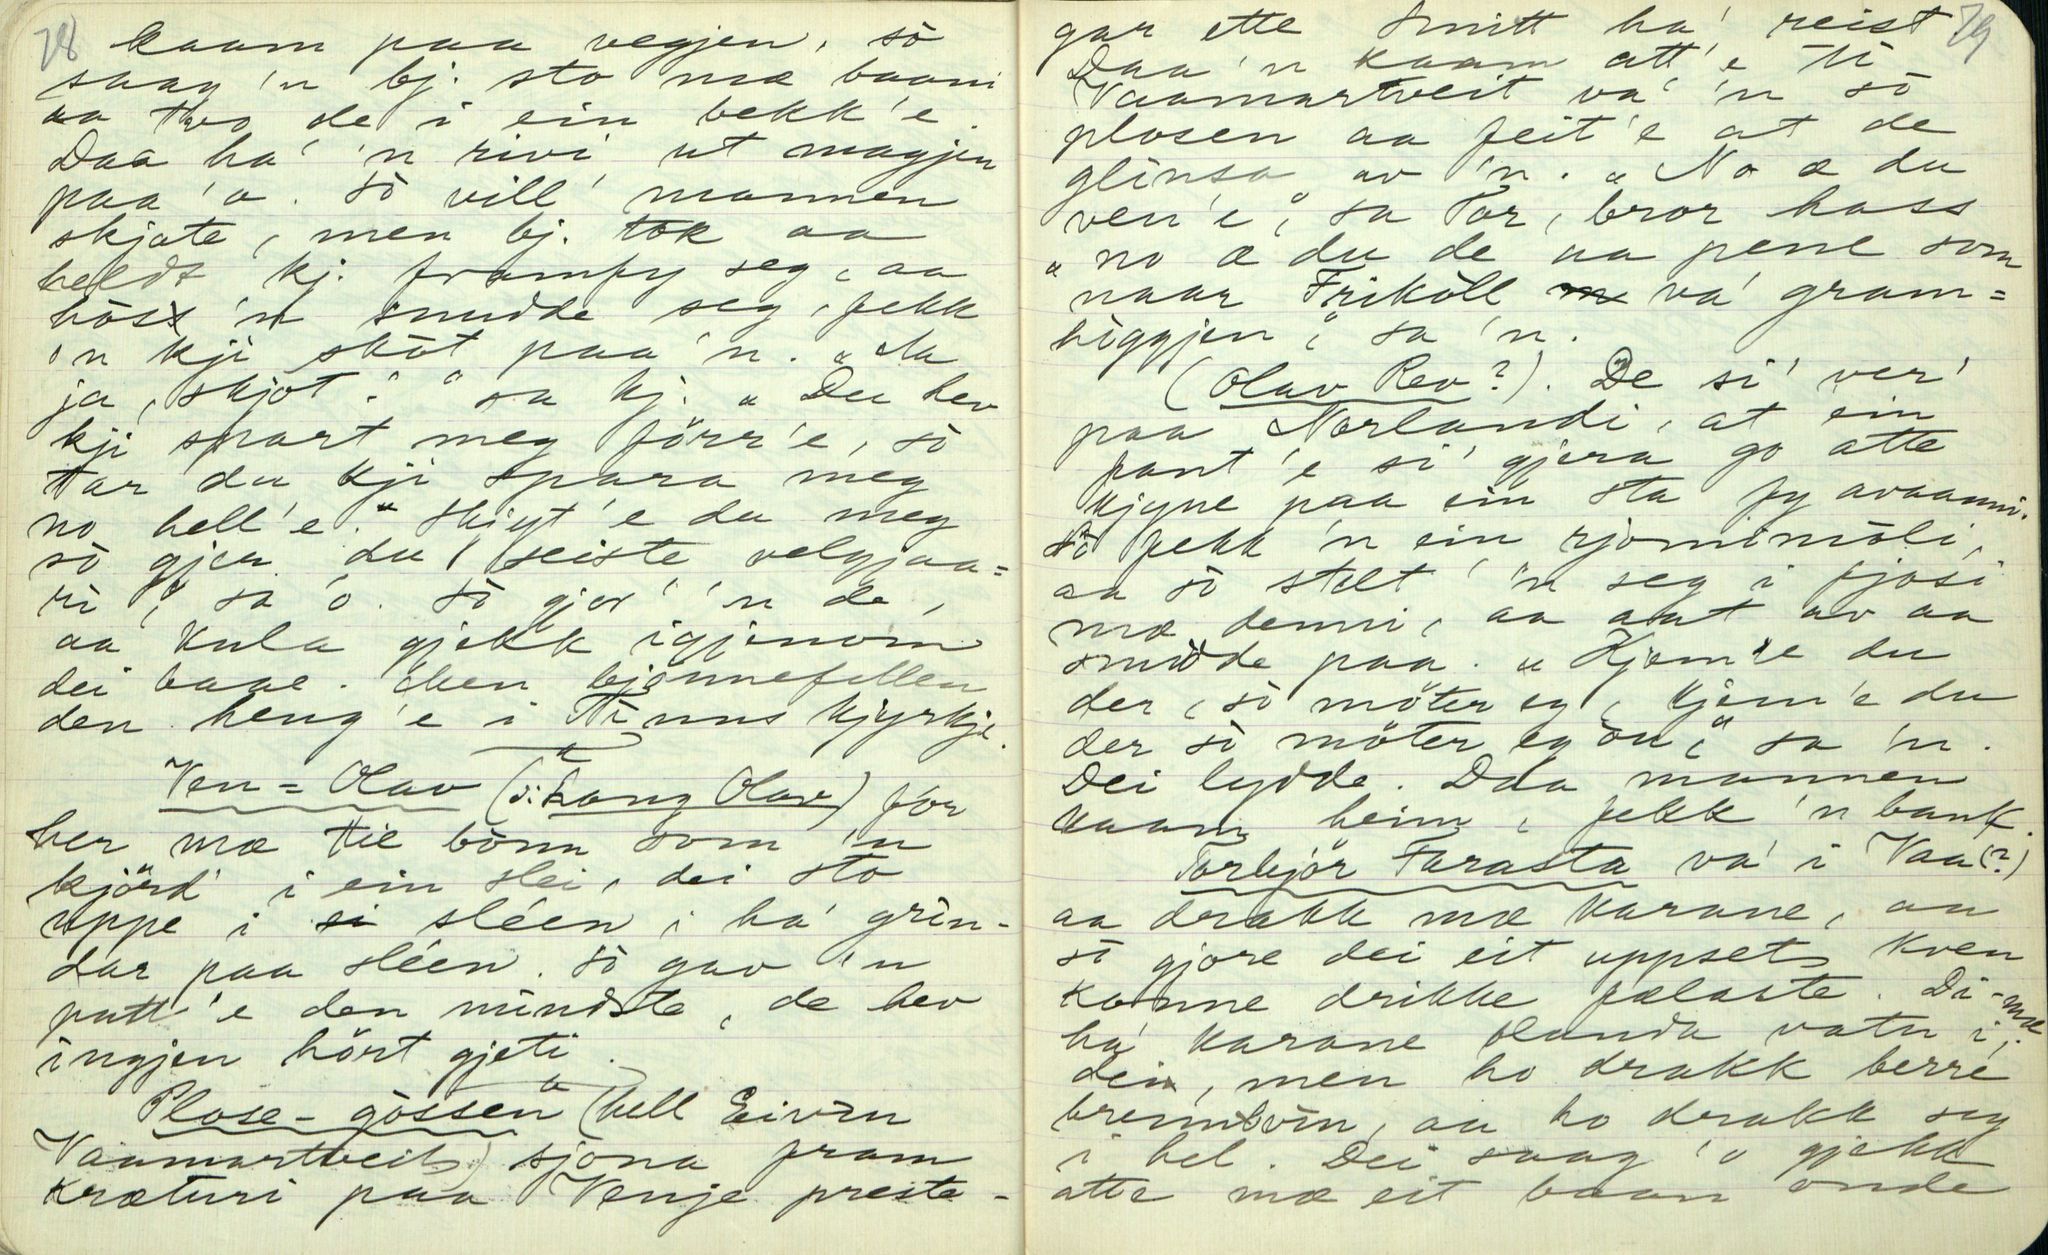 78
kaam paa vegjen, so
saag 'n bj. sto mæ baani
aa tvo de i ein bekk'e.
Daa ha' 'n rivi ut magjen
paa 'o. So vill' mannen
skjote, men bj. tok aa
heldt kj. framfy seg, aa
hoss 'n snudde seg, fekk
'n kji skot paa 'n. „Ja
ja, skjot!" sa kj. „Du hev
kji spart meg förr'e, so
tar du kji spara meg
no hell'e." Skjyt'e du meg
so gjer du seiste velgjaa=
ri," sa 'o. So gjor' 'n de,
aa kula gjekk igjenom
dei baae. Men bjönnefellen
den heng'e i Tinns kjyrkje.
Ven=Olav (o: Lang Olav) for
her mæ tie bönn som 'n
kjörd' i ein slei, dei sto
uppe i sléen, ha' grin-
dar paa sléen. So gav 'n
putt'e den mindste, de hev
ingjen hört gjeti.
Plose-gossen (hell Eivin
Vaamartveit) sjona fram
kræturi paa Venje preste-
79
gar ette Smitt ha' reist.
Daa 'n kaam att'e ti
Vaamartveit va' 'n so
plosen aa feit'e at de
glinsa av 'n. „No æ du
ven'e", sa Tor, bror hass
„no æ du de aa pene som
naar Friköll va' gram=
higgjen," sa 'n.
(Olav Rev?). De si' ver'
paa Norlandi, at ein
fant'e si' gjera go atte
kjyne paa ein sta fy avaamni.
So fekk 'n ein rjomimoli,
aa so stelt 'n seg i fjosi
mæ denni, aa aat av aa
smudde paa. „Kjem'e du
der, so möter eg, kjem'e du
der so möter eg ou," sa 'n.
Dei lydde. Daa mannen
kaam heim, fekk 'n bank.
Torbjör Farasta va' i Vaa (?)
aa drakk mæ karane, aa
so gjore dei eit uppset, kven
konne drikke fælaste. Di-mæ
ha' karane blanda vatn i
dei, men ho drakk berre
brennvin, aa ho drakk seg
i hel. Dei saag 'o gjekk
atte mæ eit baan onde